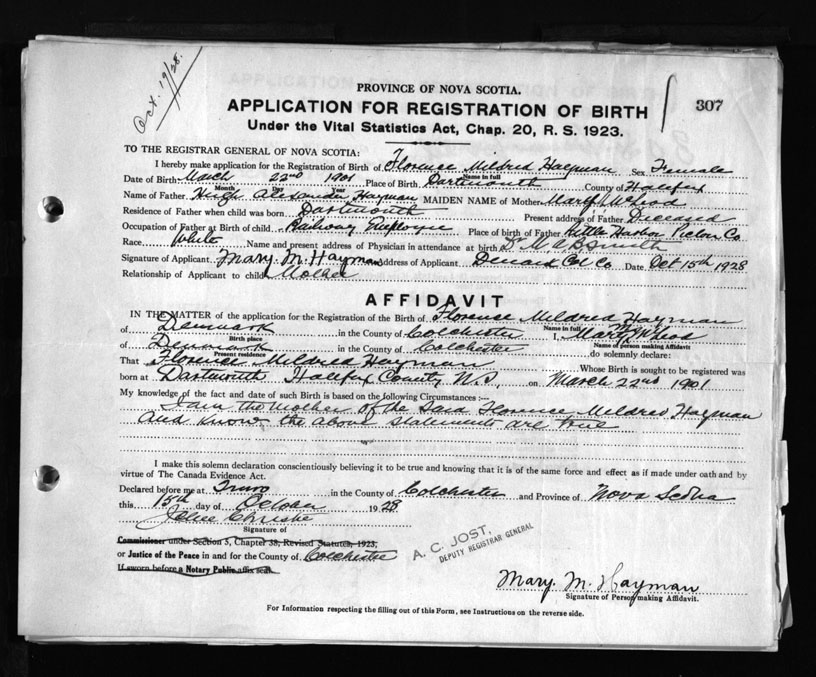 Oct. 19/28.
PROVINCE OF NOVA SCOTIA.
APPLICATION FOR REGISTRATION OF BIRTH
307
Under the Vital Statistics Act, Chap. 20, R. S. 1923.
TO THE REGISTRAR GENERAL OF NOVA SCOTIA:
I hereby make application for the Registration of Birth of Florence Mildred Hayman Sex Female
Name in full
Date of Birth March 22nd 1901 Place of Birth Dartmouth County of Halifax
Month Day Year
Name of Father Hugh Alexander Hayman MAIDEN NAME of Mother Mary McLeod
Residence of Father when child was born Dartmouth Present address of Father Diceased
Occupation of Father at Birth of child Railway Employee Place of birth of Father Harbor Pictou Co
Race White Name and present address of Physician in attendance at birth Dr M A B Smith
Signature of Applicant Mary. M. Hayman Address of Applicant Col Co Date Oct 15th 1928
Relationship of Applicant to child Mother
AFFIDAVIT
IN THE MATTER of the application for the Registration of the Birth of Florence Mildred Hayman
Name in full
of Denmark in the County of Colchester I, Mary
Birth place
Name of person making Affidavit
of Denmark in the County of Colchester do solemnly declare:
Present residence
That Florence Mildred Hayman Whose Birth is sought to be registered was
born at Dartmouth Halifax County N.S, on March 22nd 1901
My knowledge of the fact and date of such Birth is based on the following Circumstances :—
I am the Mother of the said Florence Mildred Hayman
and know the above statements are true
I make this solemn declaration conscientiously believing it to be true and knowing that it is of the same force and effect as if made under oath and by
virtue of The Canada Evidence Act.
Declared before me at Truro in the County of Colchester and Province of Nova Scotia
this 15th day of October 1928
Christie
Signature of
Commissioner under Section 3, Chapter 38, Revised Statutes, 1923,
or Justice of the Peace in and for the County of Colchester
If sworn before a Notary Public affix seal.
A. C. JOST,
DEPUTY REGISTRAR GENERAL
Mary. M. Hayman
Signature of Person making Affidavit.
For Information respecting the filling out of this Form, see Instructions on the reverse side.